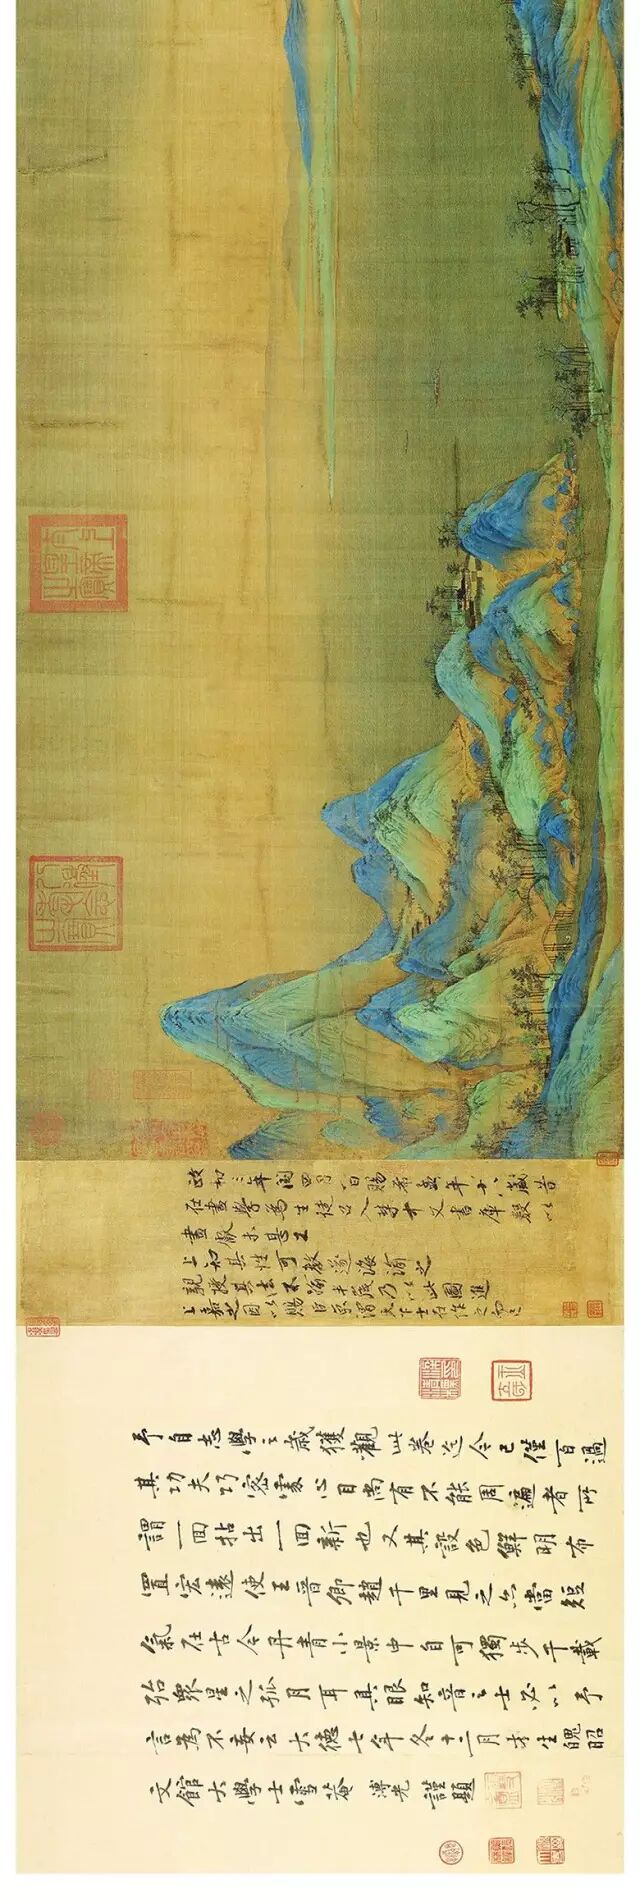 政和三年閏四月一日賜希孟年十八歲昔
在畫學爲生徒召入禁中文書庫數以
畫獻未甚工
上知其性可教遂誨諭之
親授其法不踰半歲乃以此圖進
上嘉之因以賜臣京謂天下士在作之而已
予自志學之歲獲觀此卷迄今已僅百過
其功夫巧密處心目尚有不能周遍者所
謂一回拈出一回新也又其設色鮮明布
置宏遠使王晉卿趙千里見之亦當短
氣在古今丹青小景中自可獨步千載
殆衆星之孤月耳具眼知音之士必以予
言爲不妄云大德七年冬十二月才生魄昭
文館大學士雪菴溥光謹題